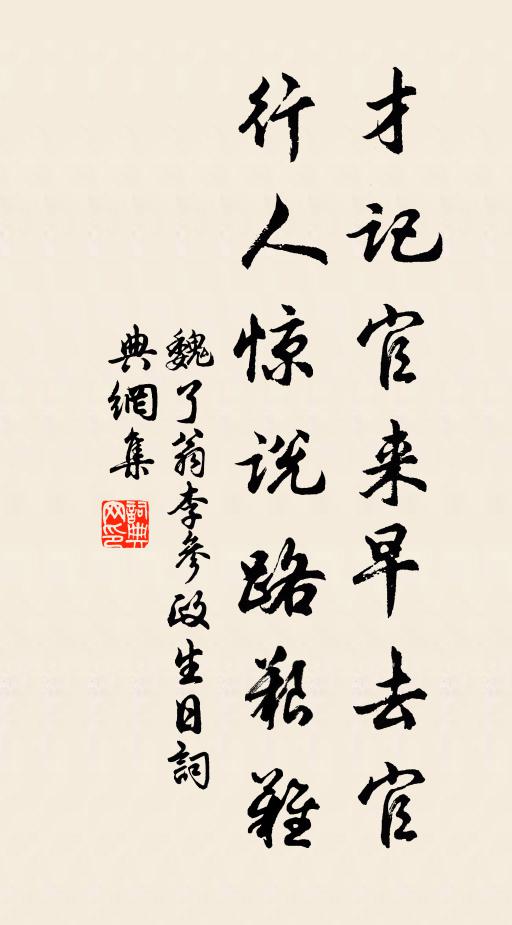 才记官来早去官
行人惊说路艰难
魏了翁李參政生日詞
典網集
詞典网印